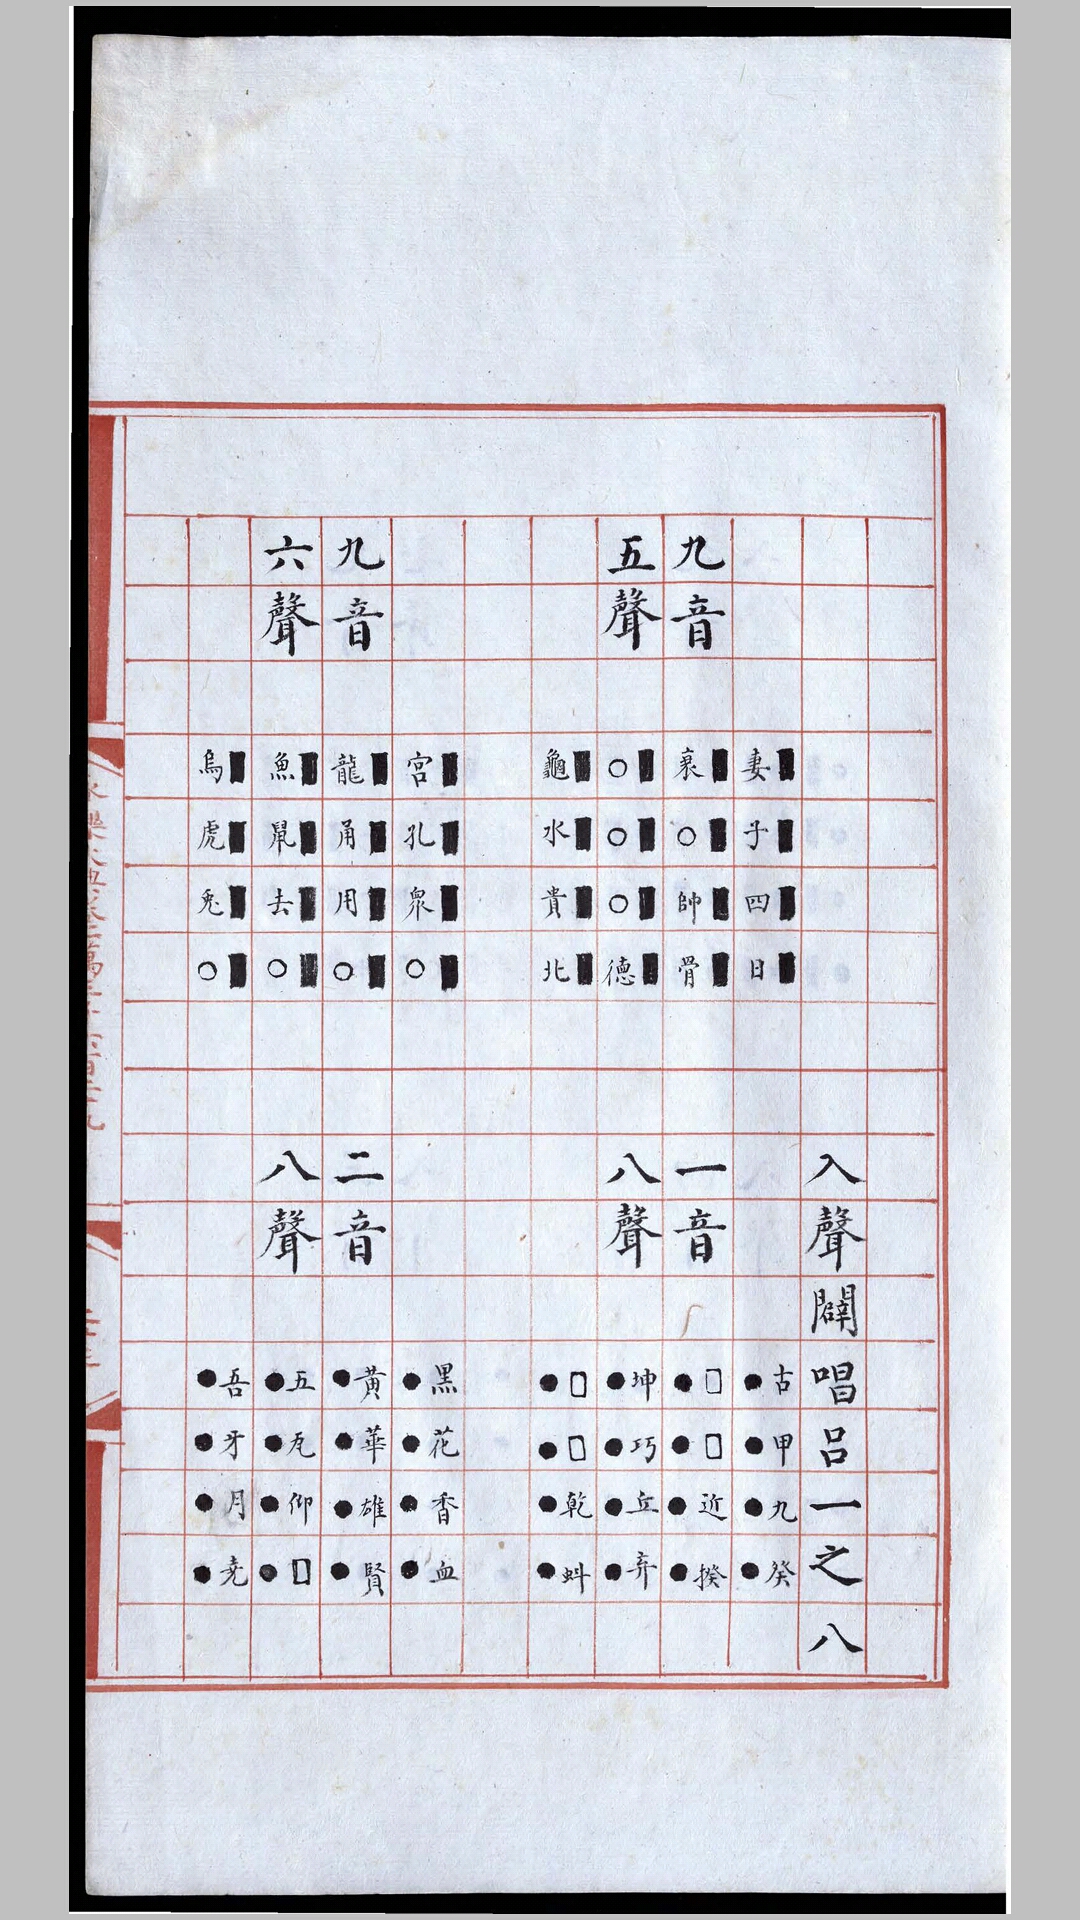 入聲闢唱呂一之八
妻▮子▮四▮日▮
●古●甲●九●癸
九音
衰▮○▮帥▮骨▮
一音
●□●□●近●揆
五聲
○▮○▮○▮德▮
八聲
●坤●巧●丘●弃
龜▮水▮貴▮北▮
●□●□●乾●虯
宮▮孔▮衆▮○▮
●黑●花●香●血
九音
龍▮甬▮用▮○▮
二音
●黃●華●雄●賢
六聲
魚▮鼠▮去▮○▮
八聲
●五●瓦●仰●□
烏▮虎▮兔▮○▮
●吾●牙●月●堯